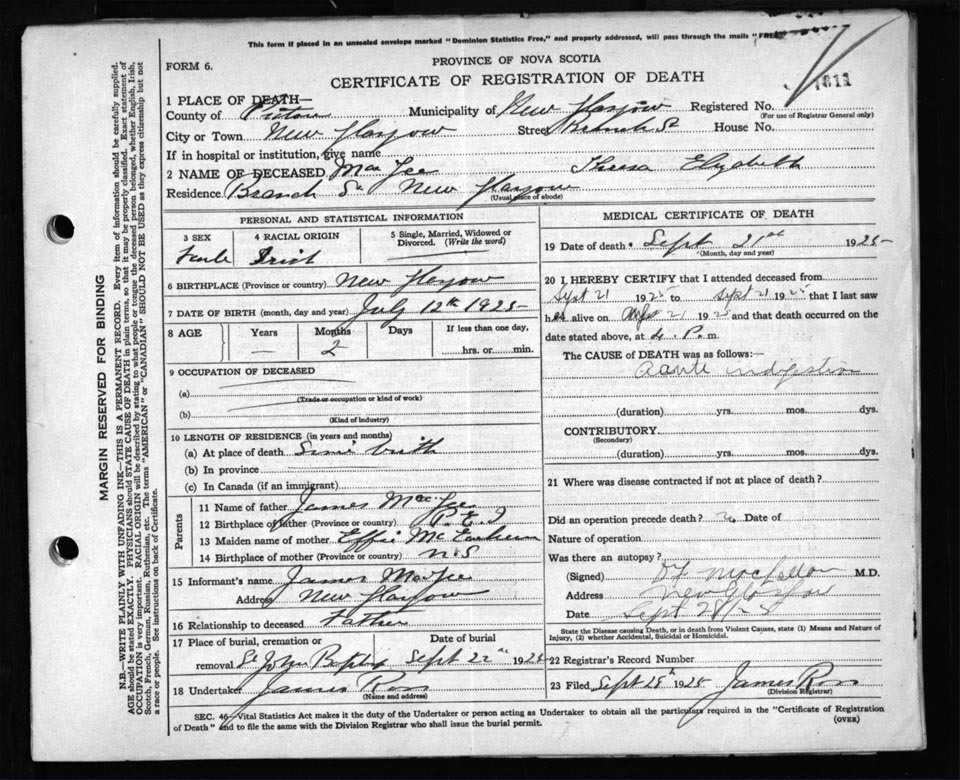 This form if placed in an unsealed envelope marked "Dominion Statistics Free," and properly addressed, will pass through the mails "FREE
FORM 6.
PROVINCE OF NOVA SCOTIA
CERTIFICATE OF REGISTRATION OF DEATH
1811
1 PLACE OF DEATH—
County of Pictou Municipality of New Glasgow Registered No.
(For use of Registrar General only)
City or Town New Glasgow Street Branch St House No.
If in hospital or institution, give name
2 NAME OF DECEASED Mac Gee Theresa Elizabeth
Residence Branch St New Glasgow
(Usual place of abode)
PERSONAL AND STATISTICAL INFORMATION
3 SEX 4 RACIAL ORIGIN 5 Single, Married, Widowed or Divorced. (Write the word)
Irish
6 BIRTHPLACE (Province or country) New Glasgow
7 DATE OF BIRTH (month, day and year) July 12th 1925
8 AGE Years Months Days If less than one day,
— 2 hrs. or min.
9 OCCUPATION OF DECEASED
(a)
(Trade or occupation or kind of work)
(b)
(Kind of industry)
10 LENGTH OF RESIDENCE (in years and months)
(a) At place of death Since birth
(b) In province
(c) In Canada (if an immigrant)
Parents
11 Name of father James Mac Gee
12 Birthplace of father (Province or country) P.E.I
13 Maiden name of mother Effie
14 Birthplace of mother (Province or country) N.S
15 Informant's name James MacGee
Address New Glasgow
16 Relationship to deceased Father
17 Place of burial, cremation or removal St John Baptist Date of burial Sept 22nd 1925
18 Undertaker James Ross
(Name and address)
MEDICAL CERTIFICATE OF DEATH
19 Date of death Sept 21st 1925
(Month, day and year)
20 I HEREBY CERTIFY that I attended deceased from
Sept 21 1925 to Sept 21 1925 that I last saw
her alive on Sept 21 1925 and that death occurred on the
date stated above, at 4. P. m.
The CAUSE of DEATH was as follows:—
Acute indigestion
(duration) yrs. mos. dys.
CONTRIBUTORY
(Secondary)
(duration) yrs. mos. dys.
21 Where was disease contracted if not at place of death?
Did an operation precede death? Date of
Nature of operation
Was there an autopsy?
(Signed) M.D.
Address New Glasgow
Date Sept 28/25
State the Disease causing Death, or in death from Violent Causes, state (1) Means and Nature of
Injury, (2) whether Accidental, Suicidal or Homicidal.
22 Registrar's Record Number
23 Filed Sept 28th 1925 James Ross
(Division Registrar)
SEC. 46—Vital Statistics Act makes it the duty of the Undertaker or person acting as Undertaker to obtain all the particulars required in the "Certificate of Registration
of Death" and to file the same with the Division Registrar who shall issue the burial permit.
(OVER)
MARGIN RESERVED FOR BINDING
N.B.—WRITE PLAINLY WITH UNFADING INK—THIS IS A PERMANENT RECORD. Every item of information should be carefully supplied.
AGE should be stated EXACTLY. PHYSICIANS should STATE CAUSE OF DEATH in plain terms, so that it may be properly classified. Exact statement of
OCCUPATION is very important. RACIAL ORIGIN will be described by stating to what people or tongue the deceased person belonged, whether English, Irish,
Scotch, French, German, Russian, Ruthenian, etc. The terms "AMERICAN" or "CANADIAN" SHOULD NOT BE USED as they express citizenship but not
a race or people. See instructions on back of Certificate.